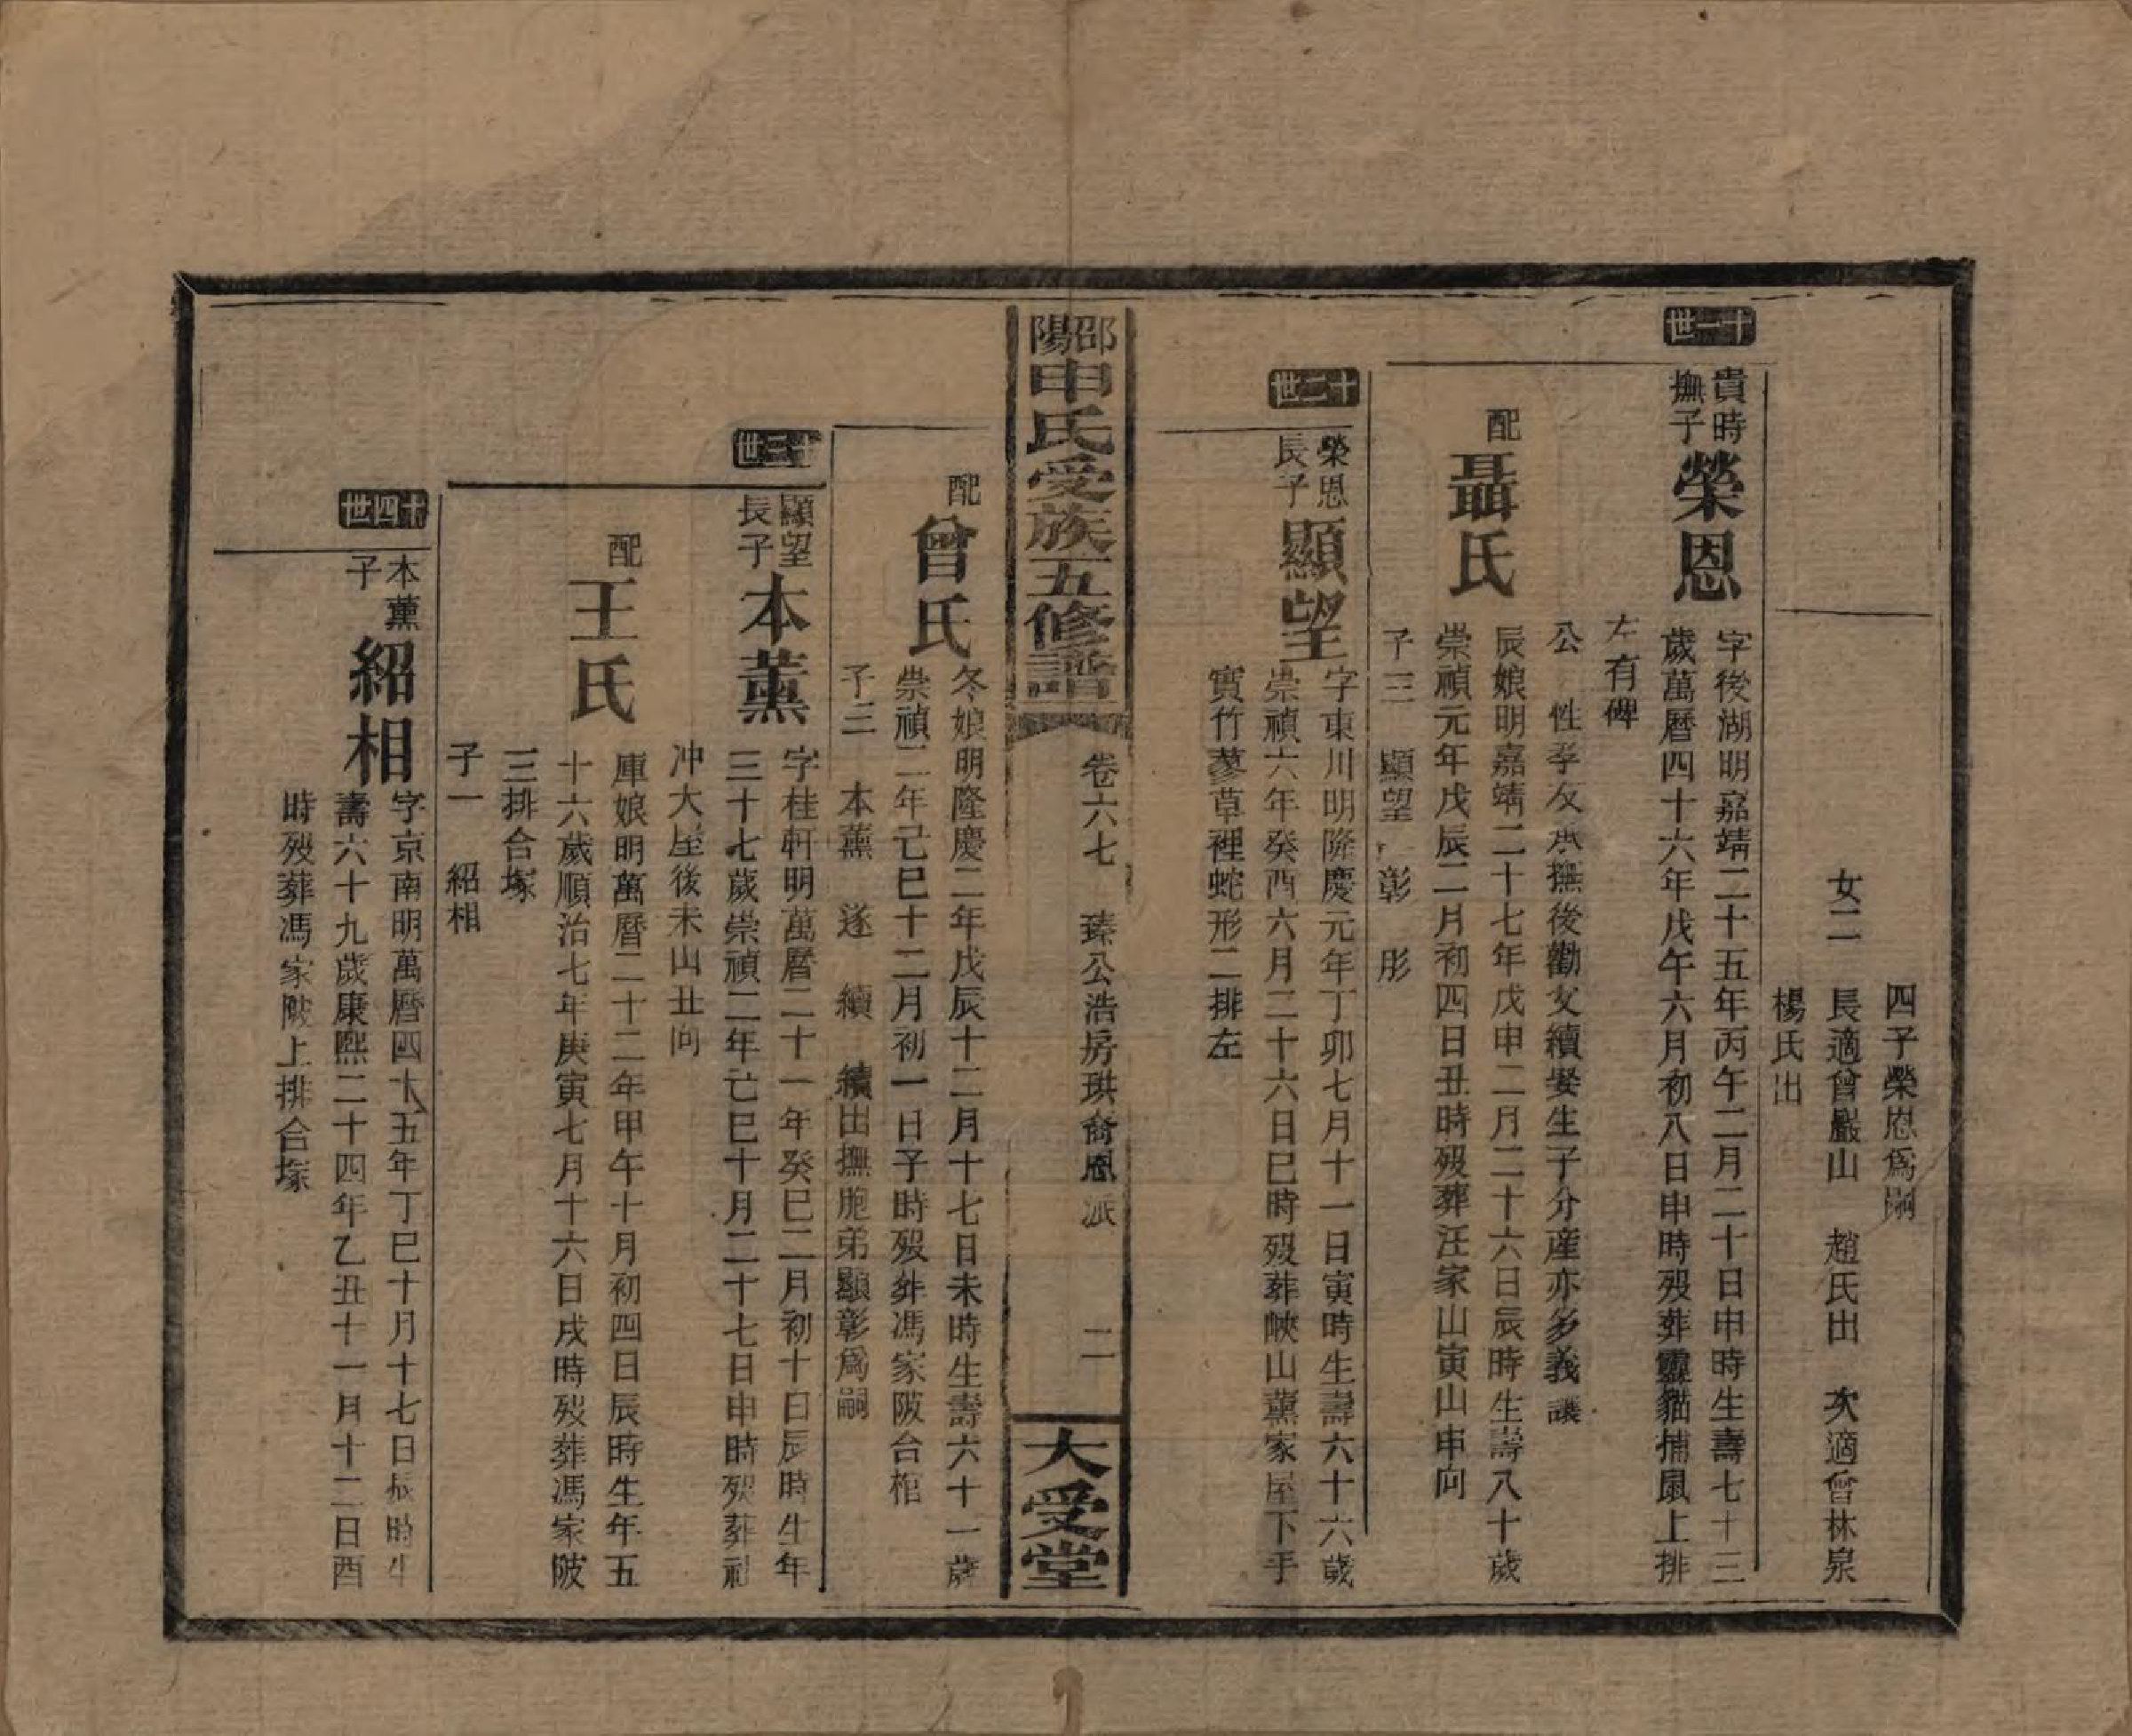 四子榮恩爲嗣
女二　長適曾巖山　趙氏出　次適曾林泉
楊氏出
十一世
貴時
撫子
榮恩
字後湖明嘉靖二十五年丙午二月二十日申時生壽七十三
歲萬曆四十六年戊午六月初八日申時歿葬靈貓捕鼠上排
左有碑
公　性孝友承撫後勸父續娶生子分産亦多義讓
配
聶氏
辰娘明嘉靖二十七年戊申二月二十六日辰時生壽八十歲
崇禎元年戊辰二月初四日丑時歿葬汪家山寅山申向
子三　顯望　彰　彤
十二世
榮恩
長子
顯望
字東川明隆慶元年丁卯七月十一日寅時生壽六十六歲
崇禎六年癸酉六月二十六日巳時歿葬峽山薰家屋下手
實竹蓼草裡蛇形二排左
邵陽申氏受族五修譜
卷六七　臻公浩房珙裔恩派
二
大受堂
配
曾氏
冬娘明隆慶二年戊辰十二月十七日未時生壽六十一歲
崇禎二年己巳十二月初一日子時歿葬馮家陂台棺
子三　本薰　遂　續　續出撫胞弟顯彰爲嗣
十三世
顯望
長子
本薰
字桂軒明萬曆二十一年癸巳二月初十日辰時生年
三十七歲崇禎二年己巳十月二十七日申時歿葬社
冲大屋後未山丑向
配
王氏
庫娘明萬曆二十二年甲午十月初四日辰時生年五
十六歲順治七年庚寅七月十六日戌時歿葬馮家陂
三排合塚
子一　紹相
十四世
本薰
子
紹相
字京南明萬曆四十五年丁巳十月十七日辰時生
壽六十九歲康熙二十四年乙丑十一月十二日酉
時歿葬馮家陂上排合塚